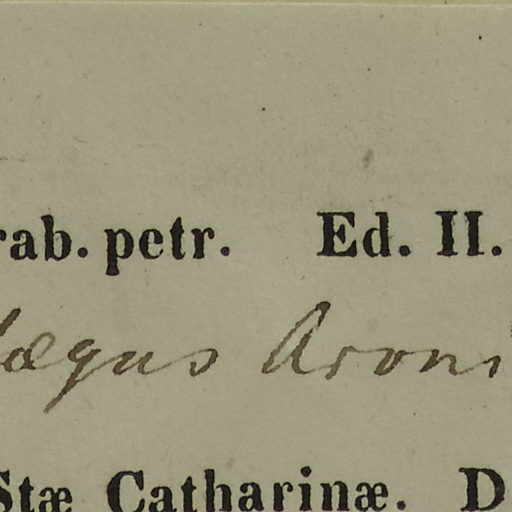 rab. petr. Ed. II.
tægus Aroni
Stæ Catharinæ. D